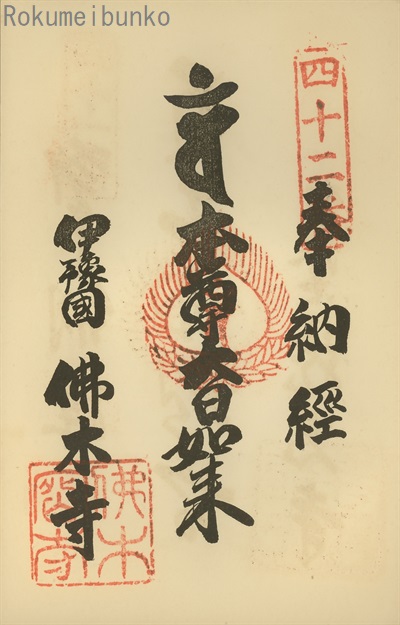 Rokumeibunko
四十二
奉納經
本尊大日如来
伊豫國 佛木寺
佛木
寺